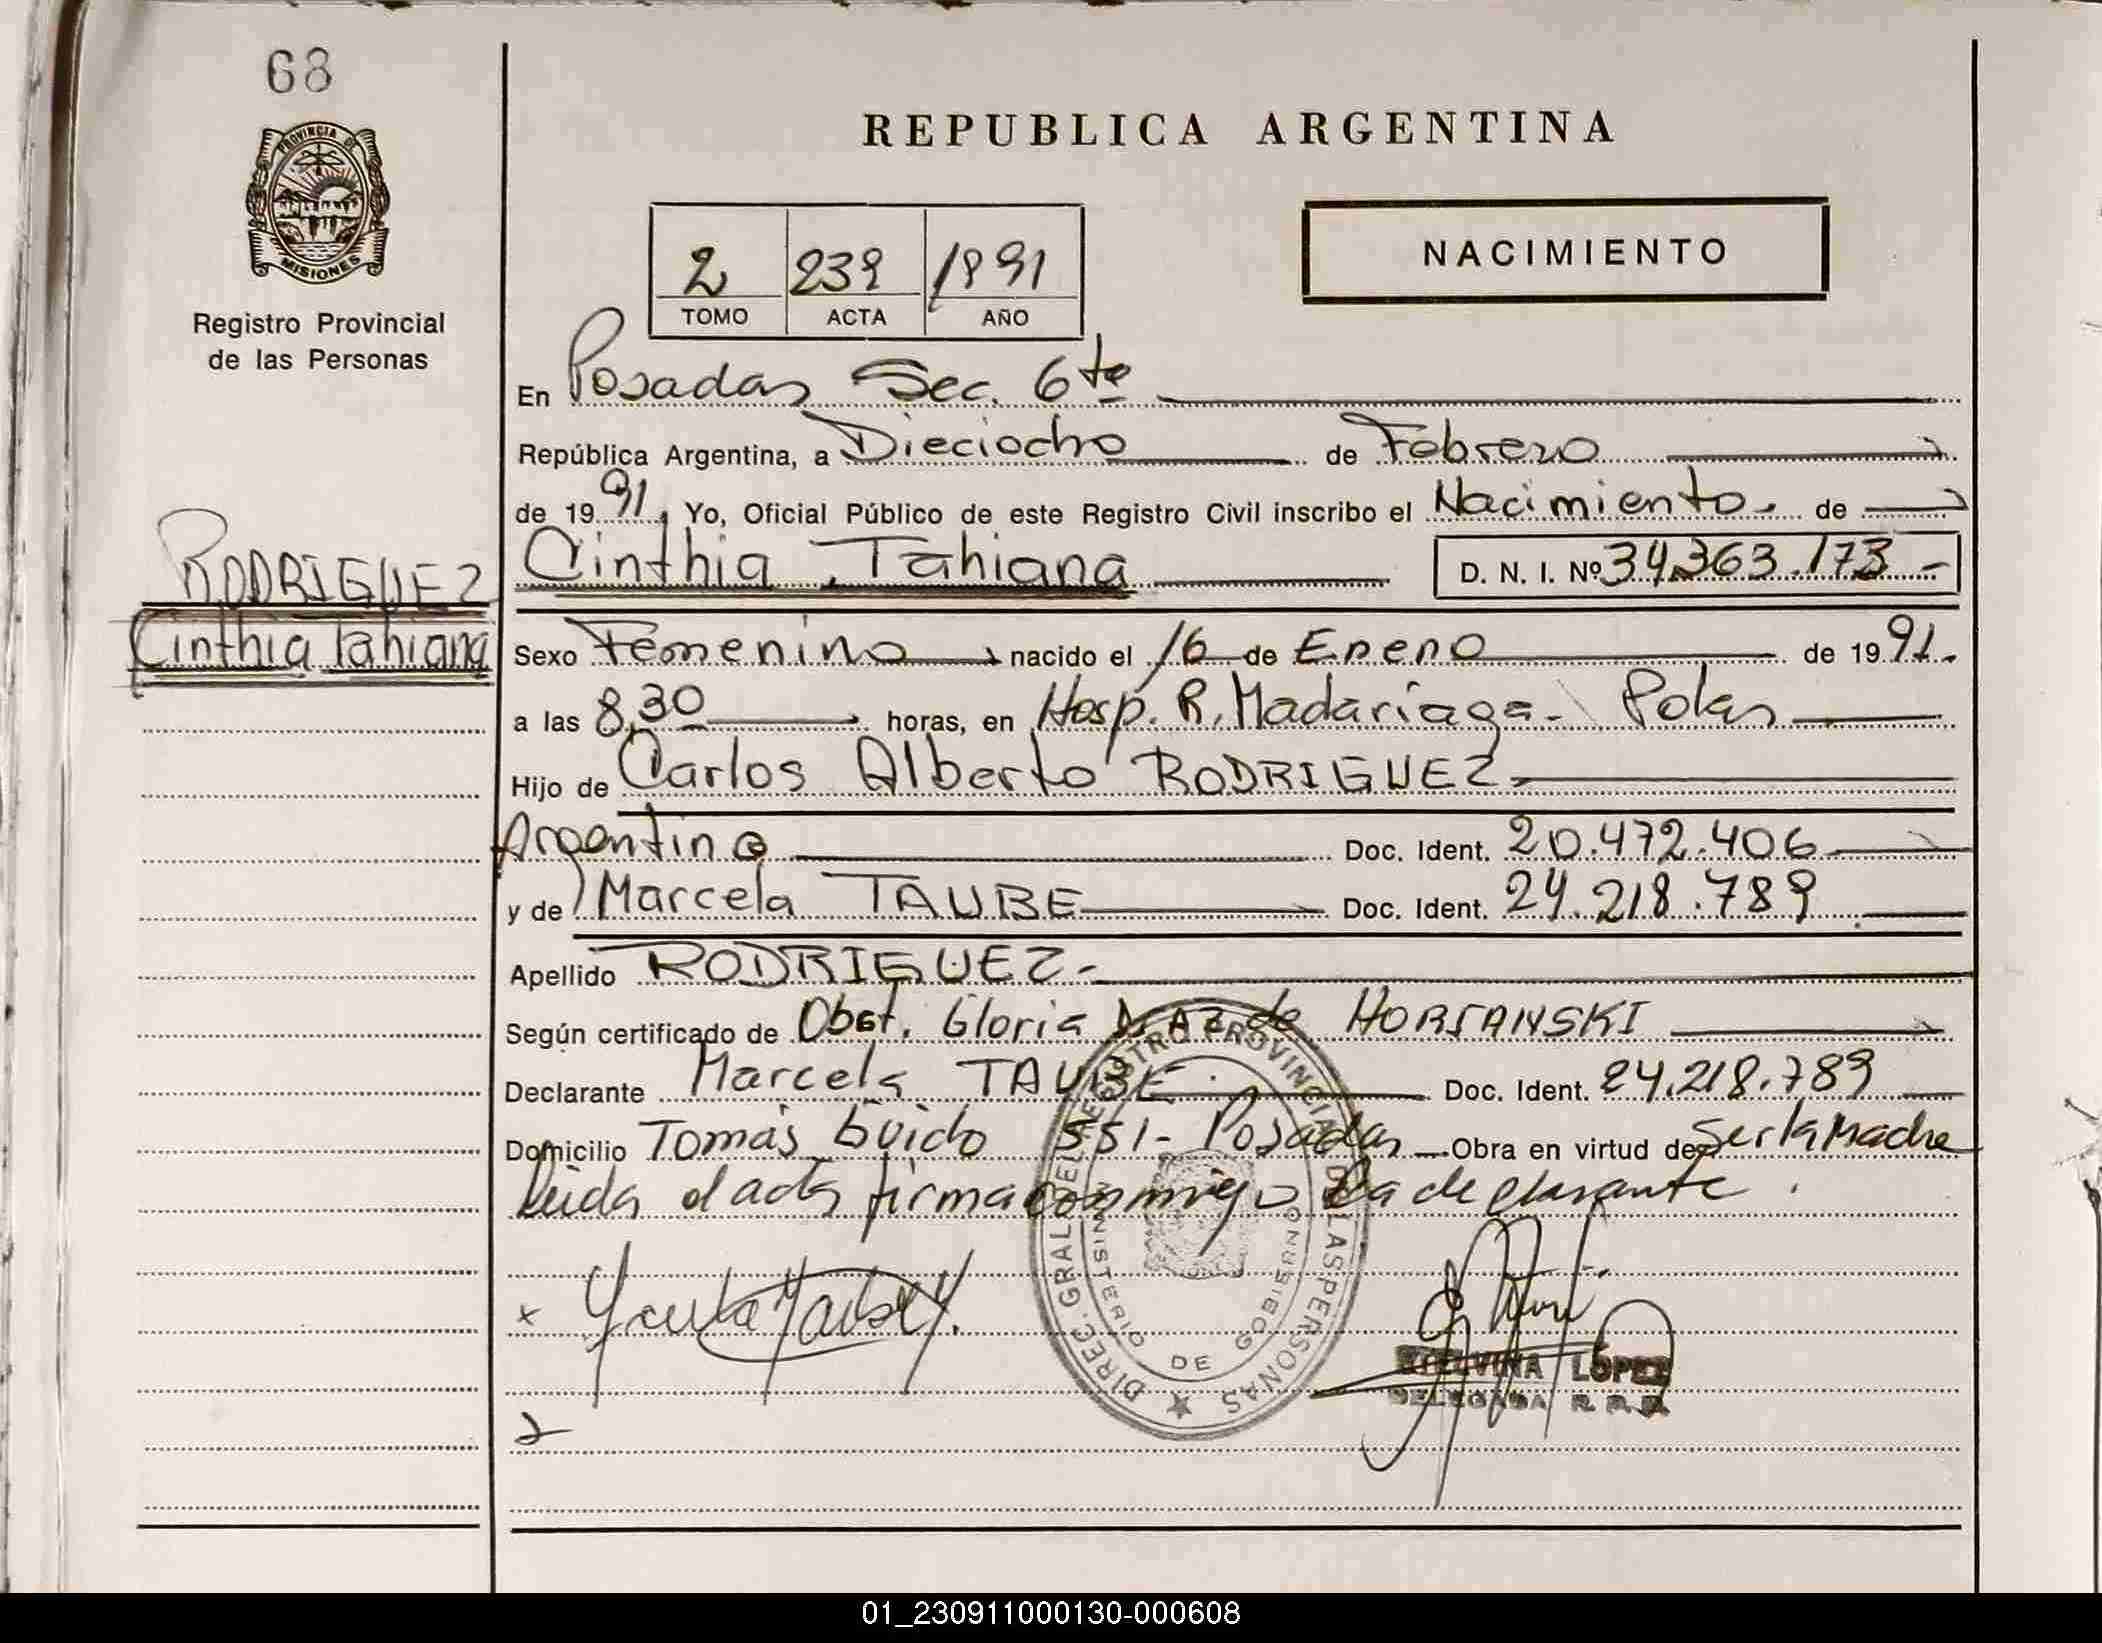 68
PROVINCIA DE
MISIONES
Registro Provincial
de las Personas
RODRIGUEZ
Cinthia Tahiana
REPUBLICA ARGENTINA
NACIMIENTO
2 239 1991
TOMO ACTA AÑO
En Posadas Sec. 6ta
República Argentina, a Dieciocho de Febrero
de 1991, Yo, Oficial Público de este Registro Civil inscribo el Nacimiento de
Cinthia Tahiana D. N. I. Nº 34.363.173.-
Sexo Femenino nacido el 16 de Enero de 1991.
a las 8,30 horas, en Hosp. R. Madariaga - Pdas
Hijo de Carlos Alberto RODRIGUEZ
Argentina Doc. Ident. 20.472.406
y de Marcela TAUBE Doc. Ident. 24.218.789
Apellido RODRIGUEZ.-
Según certificado de Obst. Gloria Diaz de
Declarante Marcela TAUBE Doc. Ident. 24.218.789
Domicilio Tomás Guido 551- Posadas Obra en virtud de Ser la Madre
Leida el acta firma conmigo la declarante.
DIREC. GRAL DEL REGISTRO PROVINCIAL DE LAS PERSONAS
MINISTERIO DE GOBIERNO
x
LOPEZ
DELEGADA R. P. P.
01_230911000130-000608